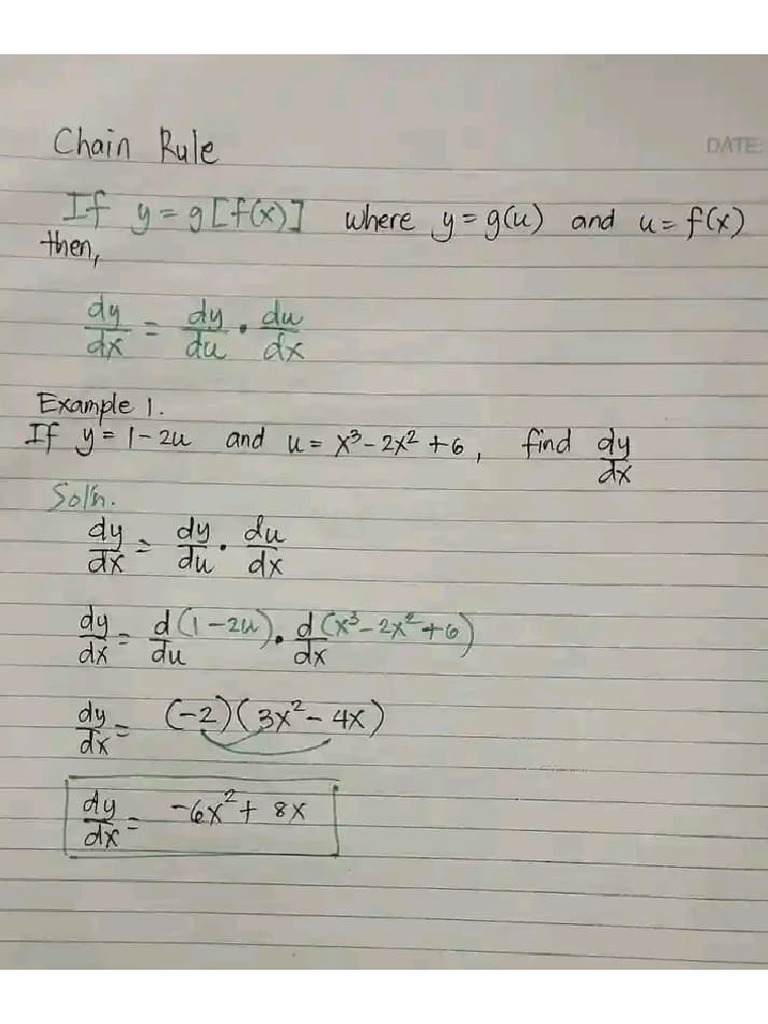 Chain Rule
DATE:
If y = g[f(x)] where y = g(u) and u = f(x)
then,
dy/dx = dy/du · du/dx
Example 1.
If y = 1 - 2u and u = x³ - 2x² + 6, find dy/dx
Sol'n.
dy/dx = dy/du · du/dx
dy/dx = d/du (1 - 2u) · d/dx (x³ - 2x² + 6)
dy/dx = (-2)(3x² - 4x)
dy/dx = -6x² + 8x